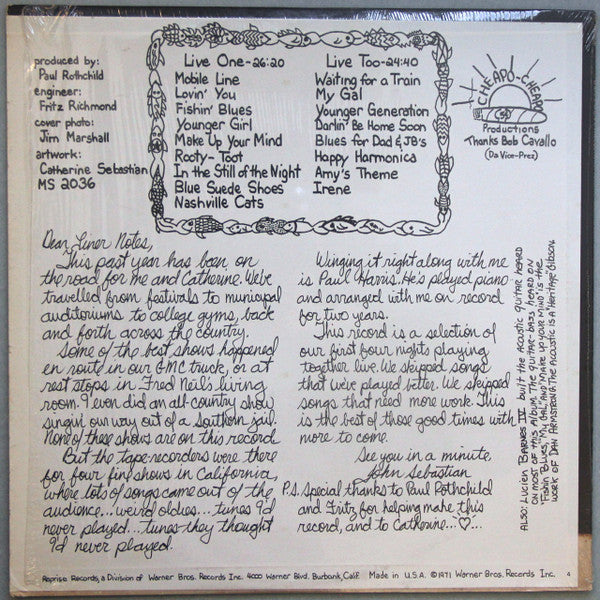 produced by:
Paul Rothchild
engineer:
Fritz Richmond
cover photo:
Jim Marshall
artwork:
Catherine Sebastian
MS 2036
Live One-26:20
Mobile Line
Lovin' You
Fishin' Blues
Younger Girl
Make Up Your Mind
Rooty-Toot
In the Still of the Night
Blue Suede Shoes
Nashville Cats
Live Too-24:40
Waiting for a Train
My Gal
Younger Generation
Darlin' Be Home Soon
Blues for Dad & JB's
Happy Harmonica
Amy's Theme
Irene
CHEAPO-CHEAPO
Productions
Thanks Bob Cavallo
(Da Vice-Prez)
Dear Liner Notes,
This past year has been on
the road for me and Catherine. We've
travelled from festivals to municipal
auditoriums to college gyms, back
and forth across the country.
Some of the best shows happened
en route in our GMC truck, or at
rest stops in Fred Neil's living
room. I even did an all-country show
singin' our way out of a Southern jail.
None of these shows are on this record
But the tape-recorders were there
for four fine shows in California,
where lots of songs came out of the
audience... weird oldies... tunes I'd
never played... tunes they thought
I'd never played.
Winging it right along with me
is Paul Harris. He's played piano
and arranged with me on record
for two years.
This record is a selection of
our first four nights playing
together live. We skipped songs
that we've played better. We skipped
songs that need more work. This
is the best of those good times with
more to come.
See you in a minute,
John Sebastian
P.S. Special thanks to Paul Rothchild
and Fritz for helping make this
record, and to Catherine...♡...
ALSO: LUCIEN BARNES IV built the ACOUSTIC GUITAR HEARD
ON MOST OF THIS ALBUM. THE GUITAR-BASS HEARD ON
"FISHIN' BLUES," "MY GAL," AND "MAKE UP YOUR MIND" IS THE
WORK OF DAN ARMSTRONG. THE ACOUSTIC IS A "HERITAGE" GIBSON.
Reprise Records, a Division of Warner Bros. Records Inc. 4000 Warner Blvd. Burbank, Calif. Made in U.S.A. ©1971 Warner Bros. Records Inc. 4